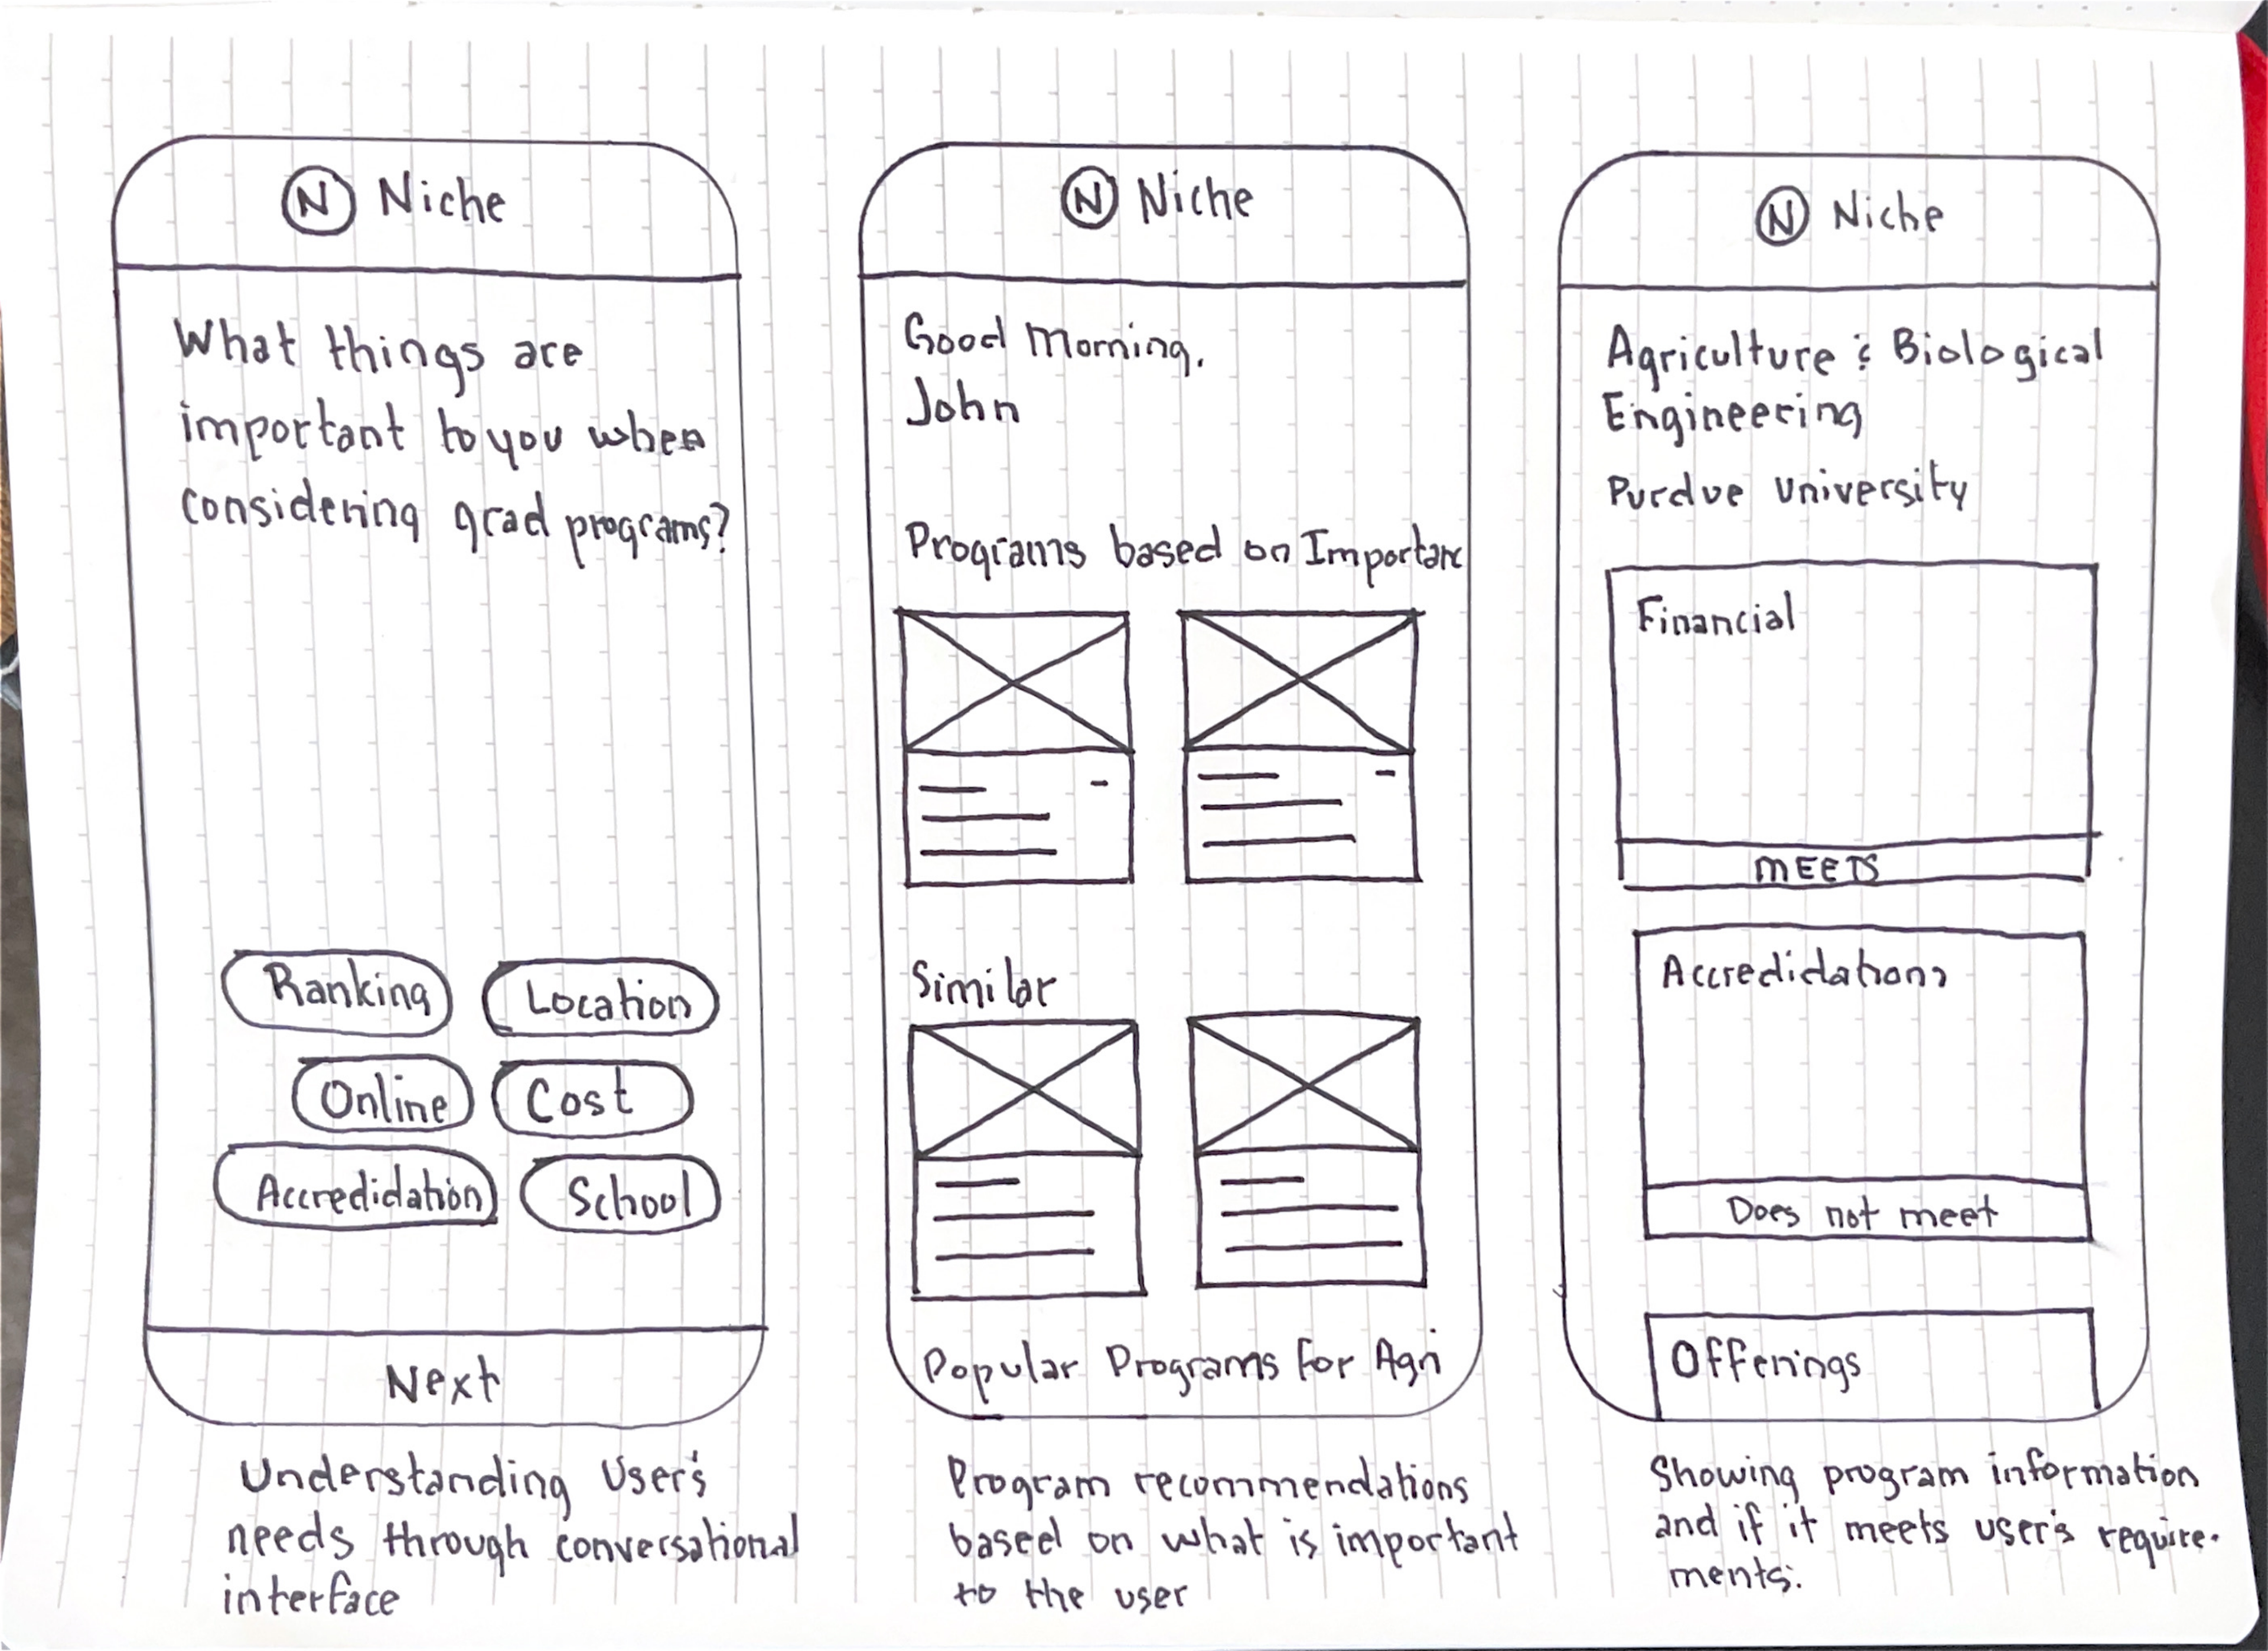 N Niche
What things are
important to you when
considering grad programs?
Ranking
Location
Online
Cost
Accredidation
School
Next
Understanding User's
needs through conversational
interface
N Niche
Good Morning,
John
Programs based on Importanc
Similar
Popular Programs for Agri
Program recommendations
based on what is important
to the user
N Niche
Agriculture & Biological
Engineering
Purdue University
Financial
MEETS
Accredidations
Does not meet
Offerings
Showing program information
and if it meets user's require-
ments.